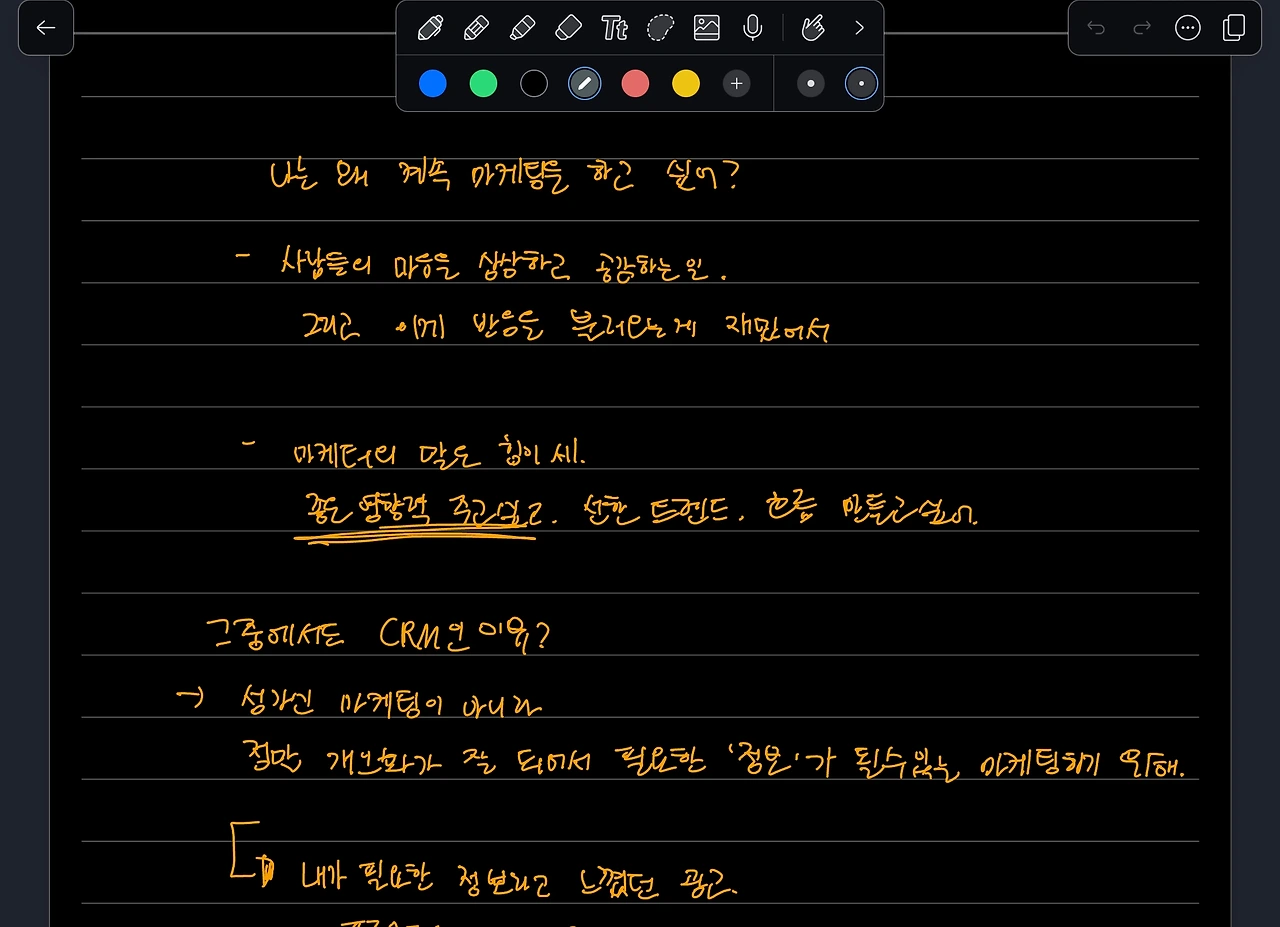 나는 왜 계속 마케팅을 하고 싶어?
- 사람들의 마음을 상상하고 공감하는 일.
그리고 이게 반응을 불러오는게 재밌어서
- 마케터의 말은 힘이 세.
좋은 영향력 주고싶고. 선한 트렌드, 흐름 만들고싶어.
그중에서도 CRM인 이유?
→ 성가신 마케팅이 아니라
정말 개인화가 잘 되어서 필요한 '정보'가 될수있는 마케팅하기 위해.
내가 필요한 정보라고 느꼈던 광고.